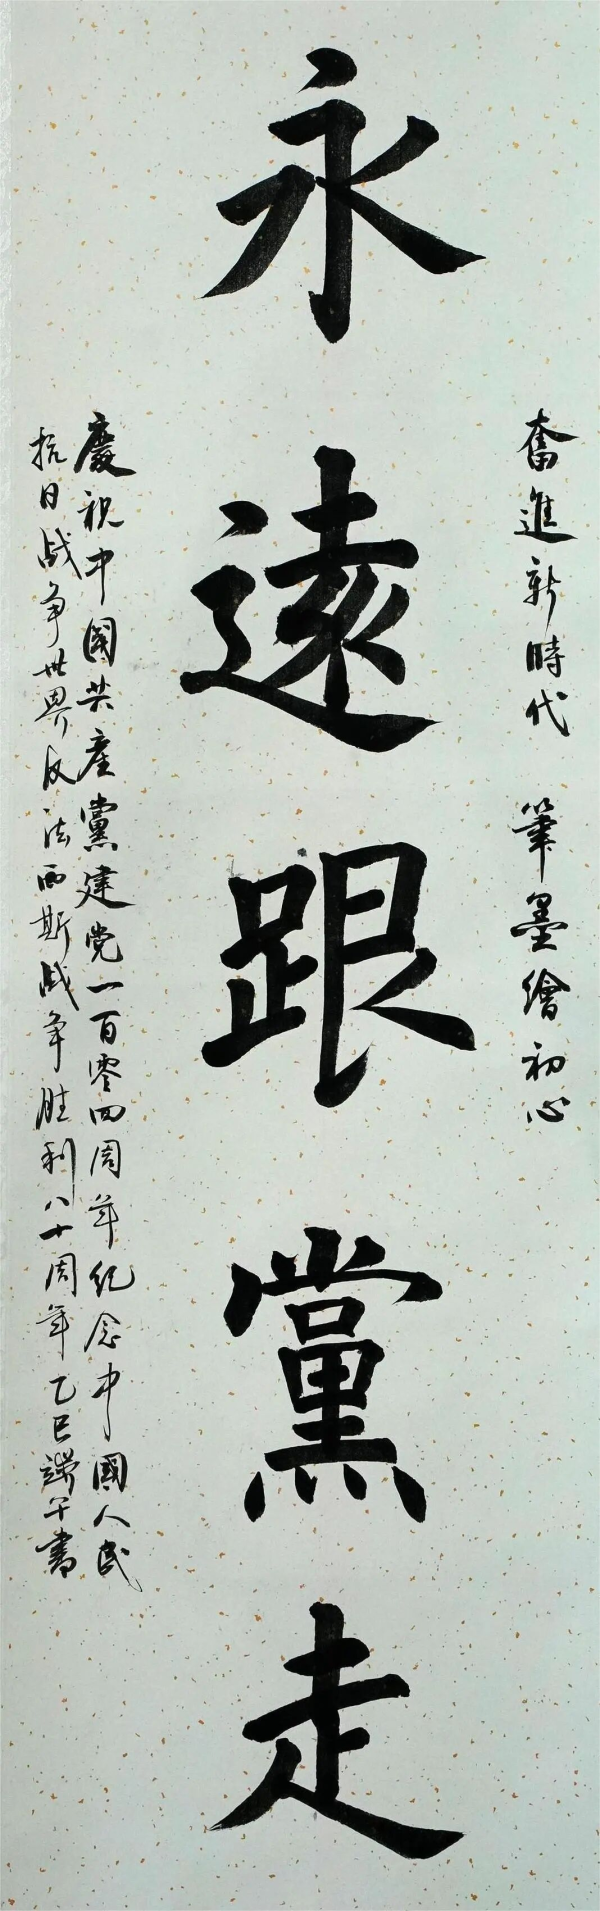 奮進新時代 筆墨繪初心
永遠跟黨走
慶祝中國共產黨建党一百零四周年纪念中國人民
抗日战争世界反法西斯战争胜利八十周年乙巳端午書